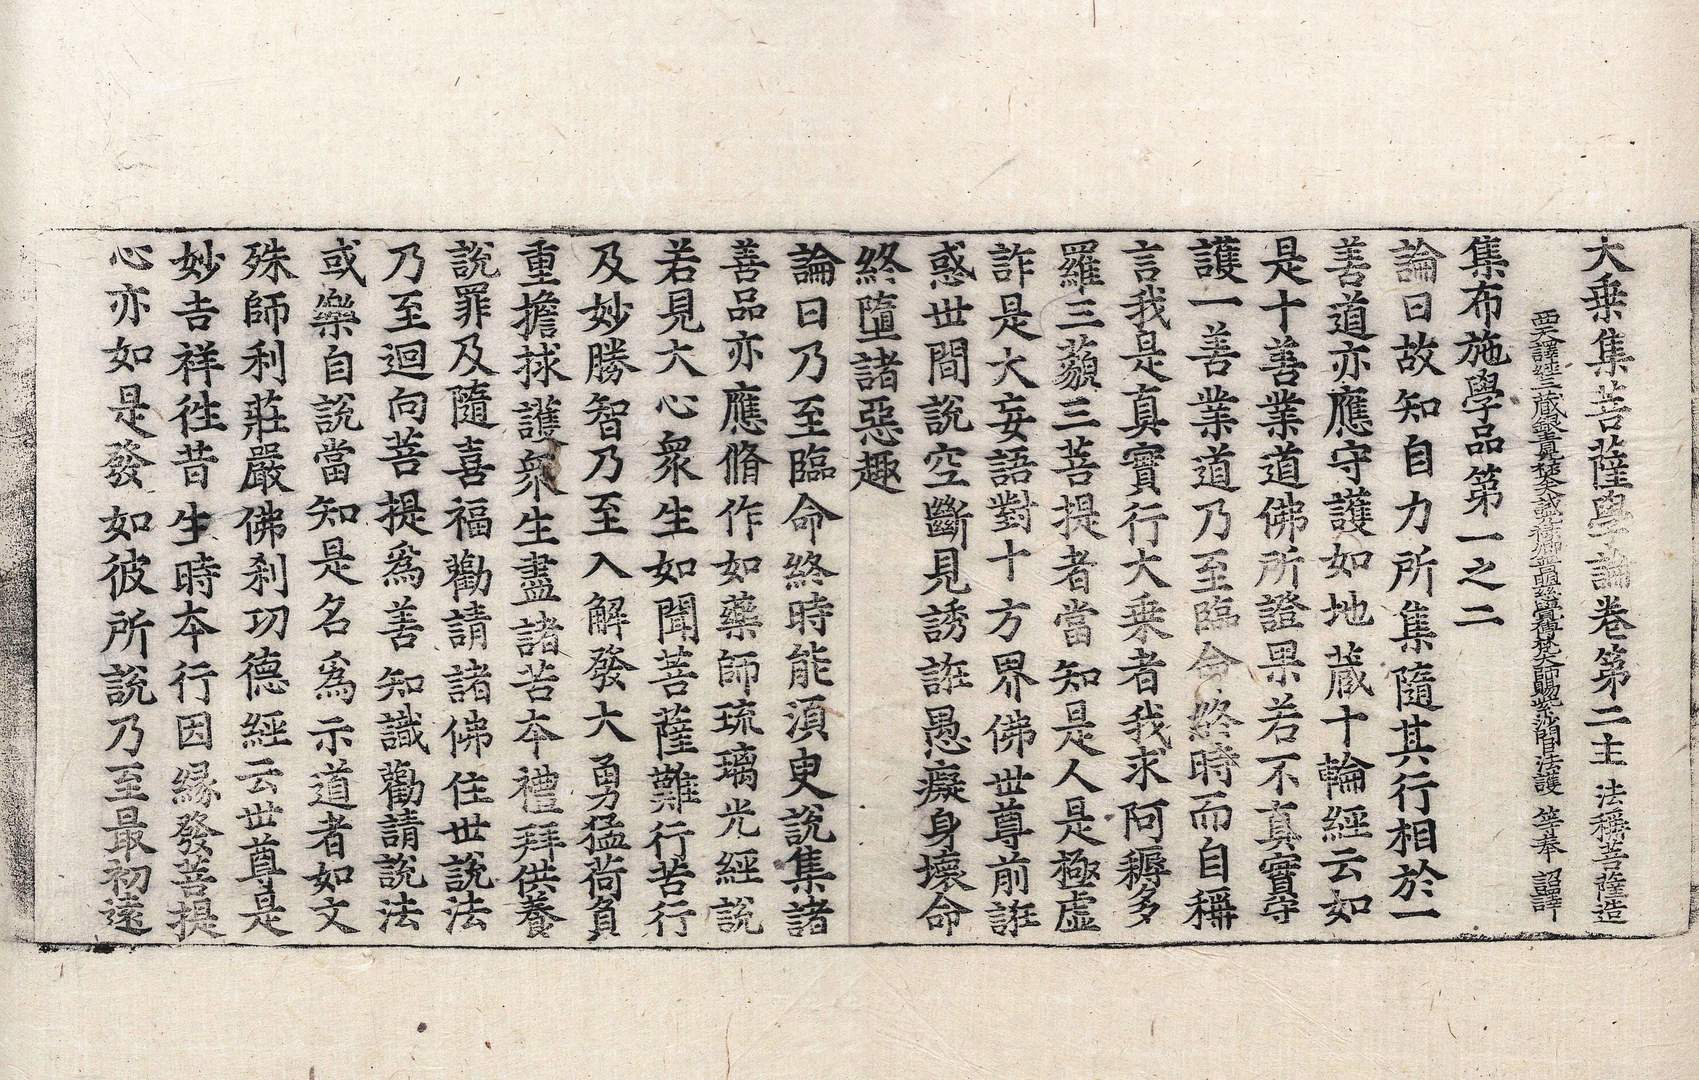 大乗集菩薩學論卷第二主 法稱菩薩造
西天譯經三藏銀青光祿大夫試光祿卿普明慈覺傳梵大師賜紫沙門臣法護 等奉 詔譯
集布施學品第一之二
論曰故知自力所集隨其行相於一
善道亦應守護如地藏十輪經云如
是十善業道佛所證果若不真實守
護一善業道乃至臨命終時而自稱
言我是真實行大乗者我求阿耨多
羅三藐三菩提者當知是人是極虛
詐是大妄語對十方界佛世尊前誑
惑世間說空斷見誘誑愚癡身壞命
終墮諸惡趣
論曰乃至臨命終時能須臾說集諸
善品亦應脩作如藥師琉璃光經說
若見大心衆生如聞菩薩難行苦行
及妙勝智乃至入解發大勇猛荷負
重擔捄護衆生盡諸苦本禮拜供養
說罪及隨喜福勸請諸佛住世說法
乃至迴向菩提爲善知識勸請說法
或樂自說當知是名爲示道者如文
殊師利莊嚴佛刹功德經云世尊是
妙吉祥徃昔生時夲行因緣發菩提
心亦如是發如彼所說乃至最初遠